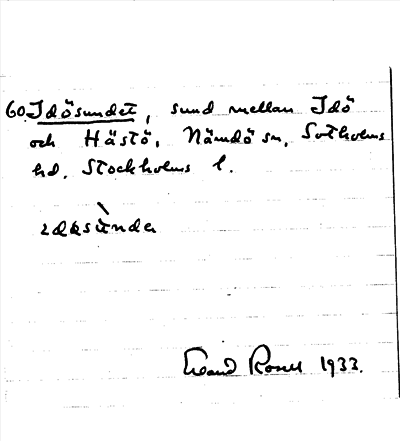 60. Idösundet, sund mellan Idö
och Hästö, Nämdö sn, Sotholms
hd. Stockholms l.
Roses 1933.